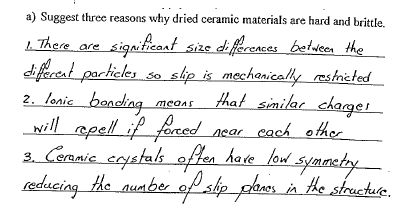 a) Suggest three reasons why dried ceramic materials are hard and brittle.
1. There are significant size differences between the
different particles so slip is mechanically restricted
2. Ionic bonding means that similar charges
will repell if forced near each other
3. Ceramic crystals often have low symmetry
reducing the number of slip planes in the structure.